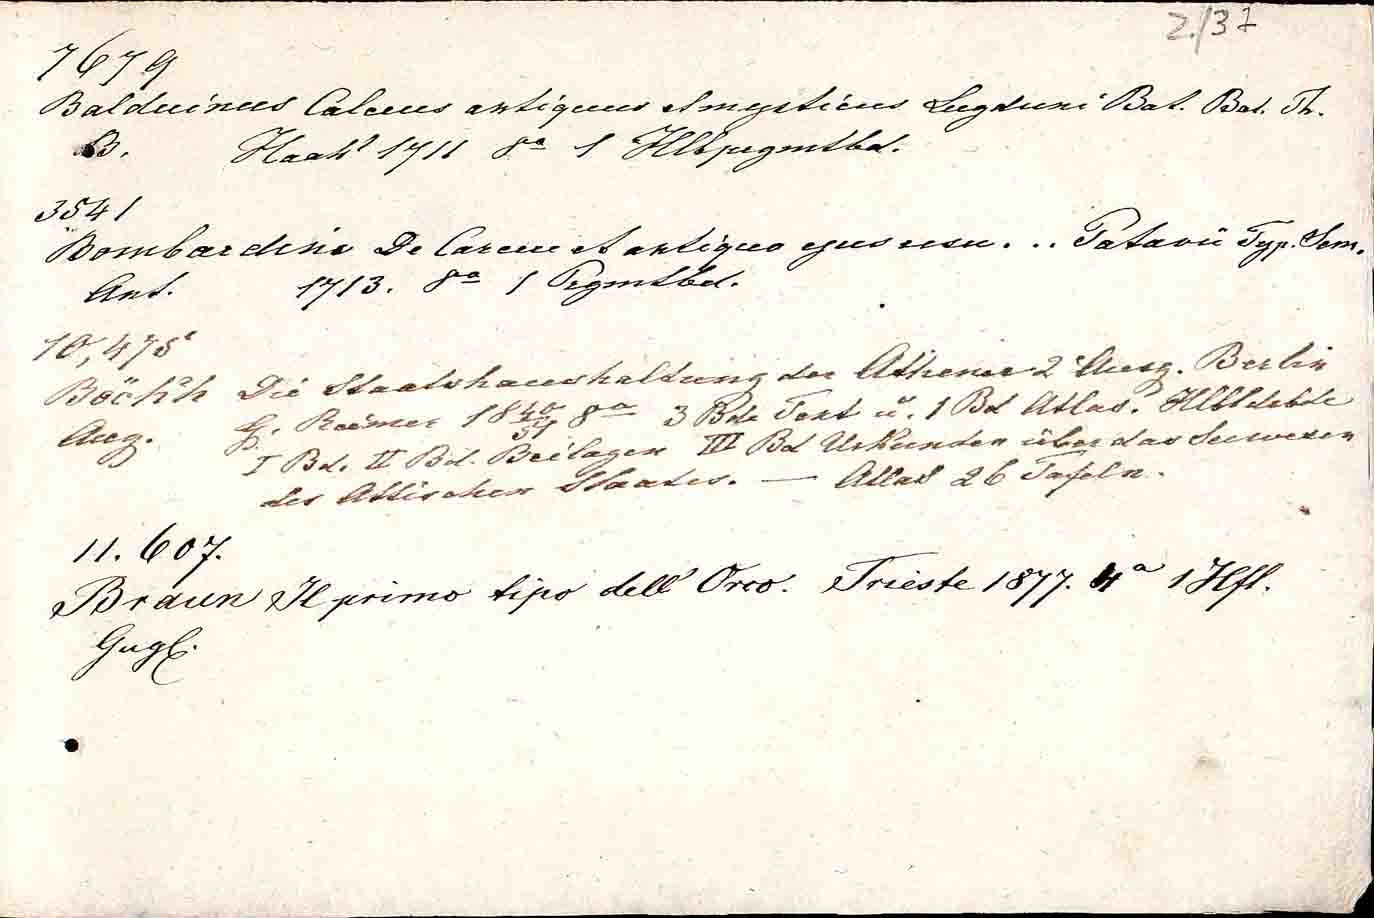 2./37
7679
Balduinus Calceus antiquus et mysticus Lugduni Bat. Bat. Th.
B. Haak 1711 8° 1 Hlbpegmtbd.
3541
Bombardini De Carcere et antiquo ejus usu... Patavii Typ. Sem.
Ant. 1713. 8° 1 Pegmtbd.
10,475
Böckh Die Staatshaushaltung der Athener 2 Ausg. Berlin
Aug. G. Reimer 18 40/51 8° 3 Bde Text u. 1 Bd Atlas. Hlbldrbde
I Bd. II Bd. Beilagen III Bd Urkunden über das Seewesen
des Attischen Staates. — Atlas 26 Tafeln.
11.607.
Braun Il primo tipo dell' Orco. Trieste 1877. 4° 1 Hft.
Gugl.